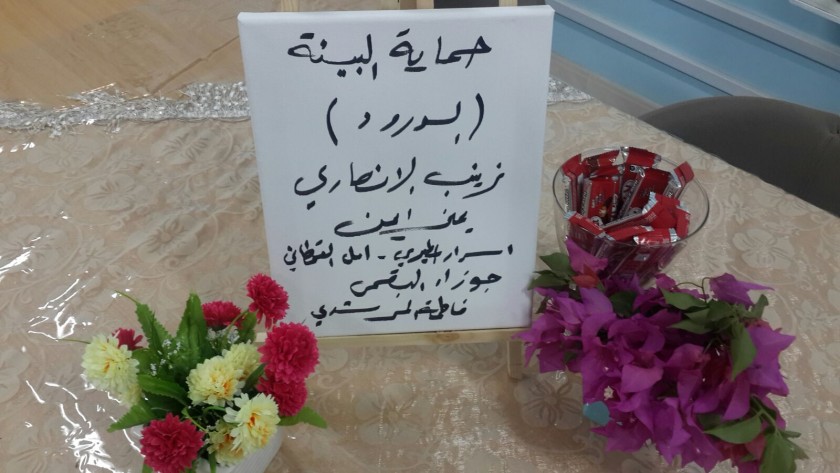 حماية البيئة
(الورود)
زينب الانصاري
يمنى ايمن
اسرار المطيري - امل القحطاني
جوزاء البقمي
فاطمة المرشدي